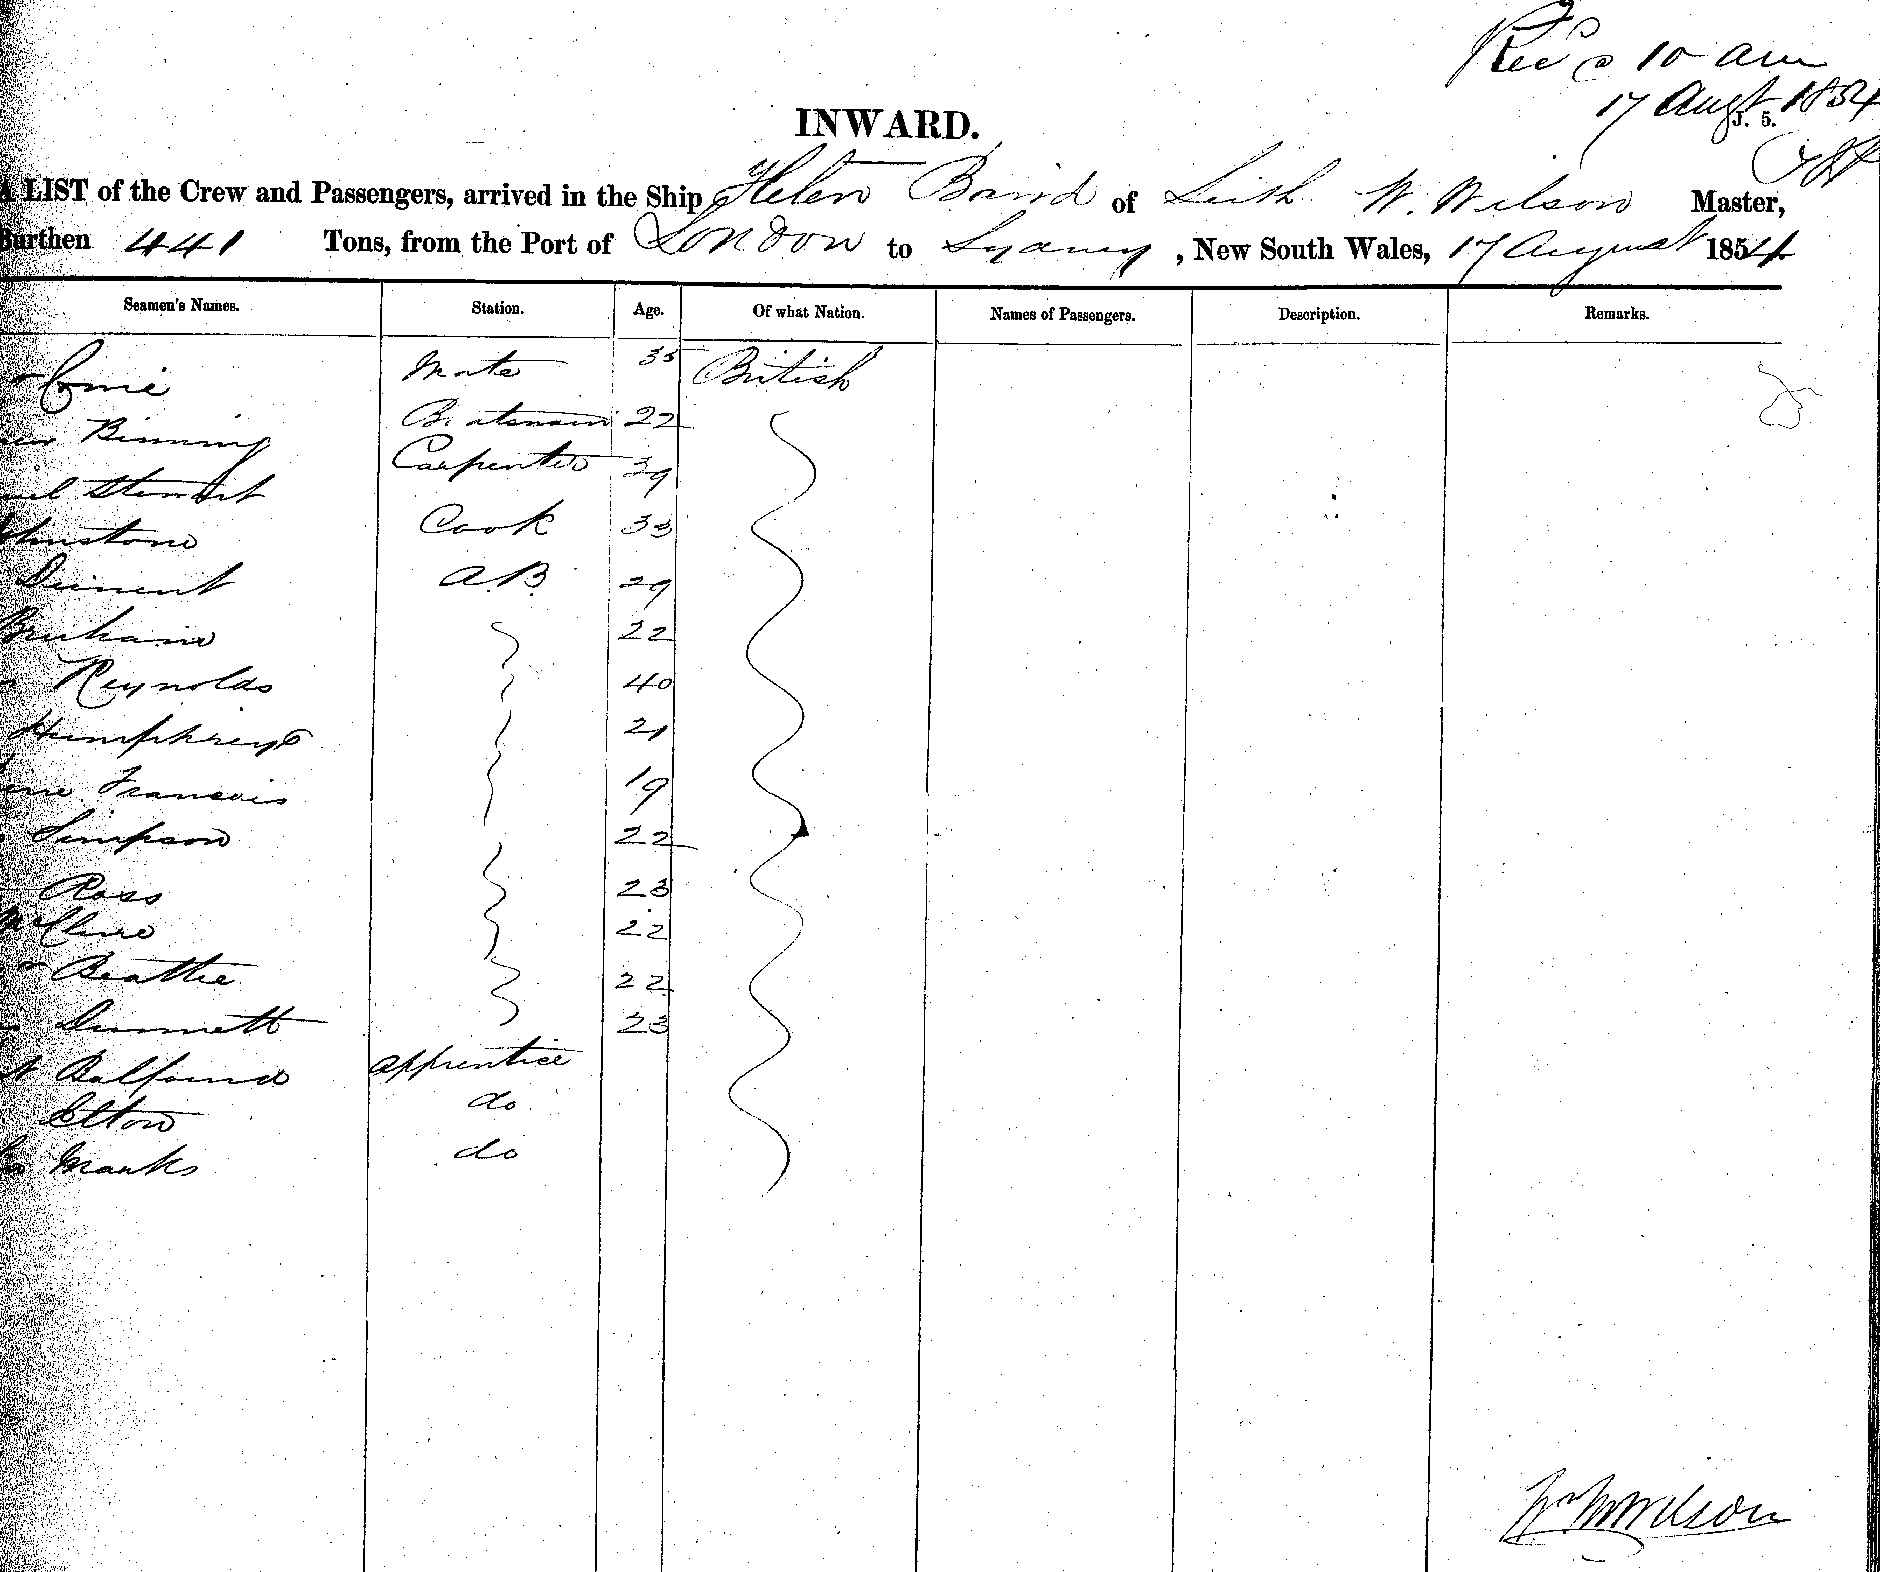 Rec'd 10 am
17 Augt. 1854
J. 5.
INWARD.
A LIST of the Crew and Passengers, arrived in the Ship Helen Baird of Leith W. Wilson Master,
Burthen 441 Tons, from the Port of London to Sydney, New South Wales, 17 August 1854
Seamen's Names. Station. Age. Of what Nation. Names of Passengers. Description. Remarks.
Mate 35 British
Binning Boatswain 22
Stewart Carpenter 39
Cook 33
A.B. 29
22
Reynolds 40
Humphreys 21
Francois 19
Simpson 22
Ross 23
McClure 22
Beattie 22
Dunnett 23
Balfour apprentice
Elton do
Manks do
Wm Wilson